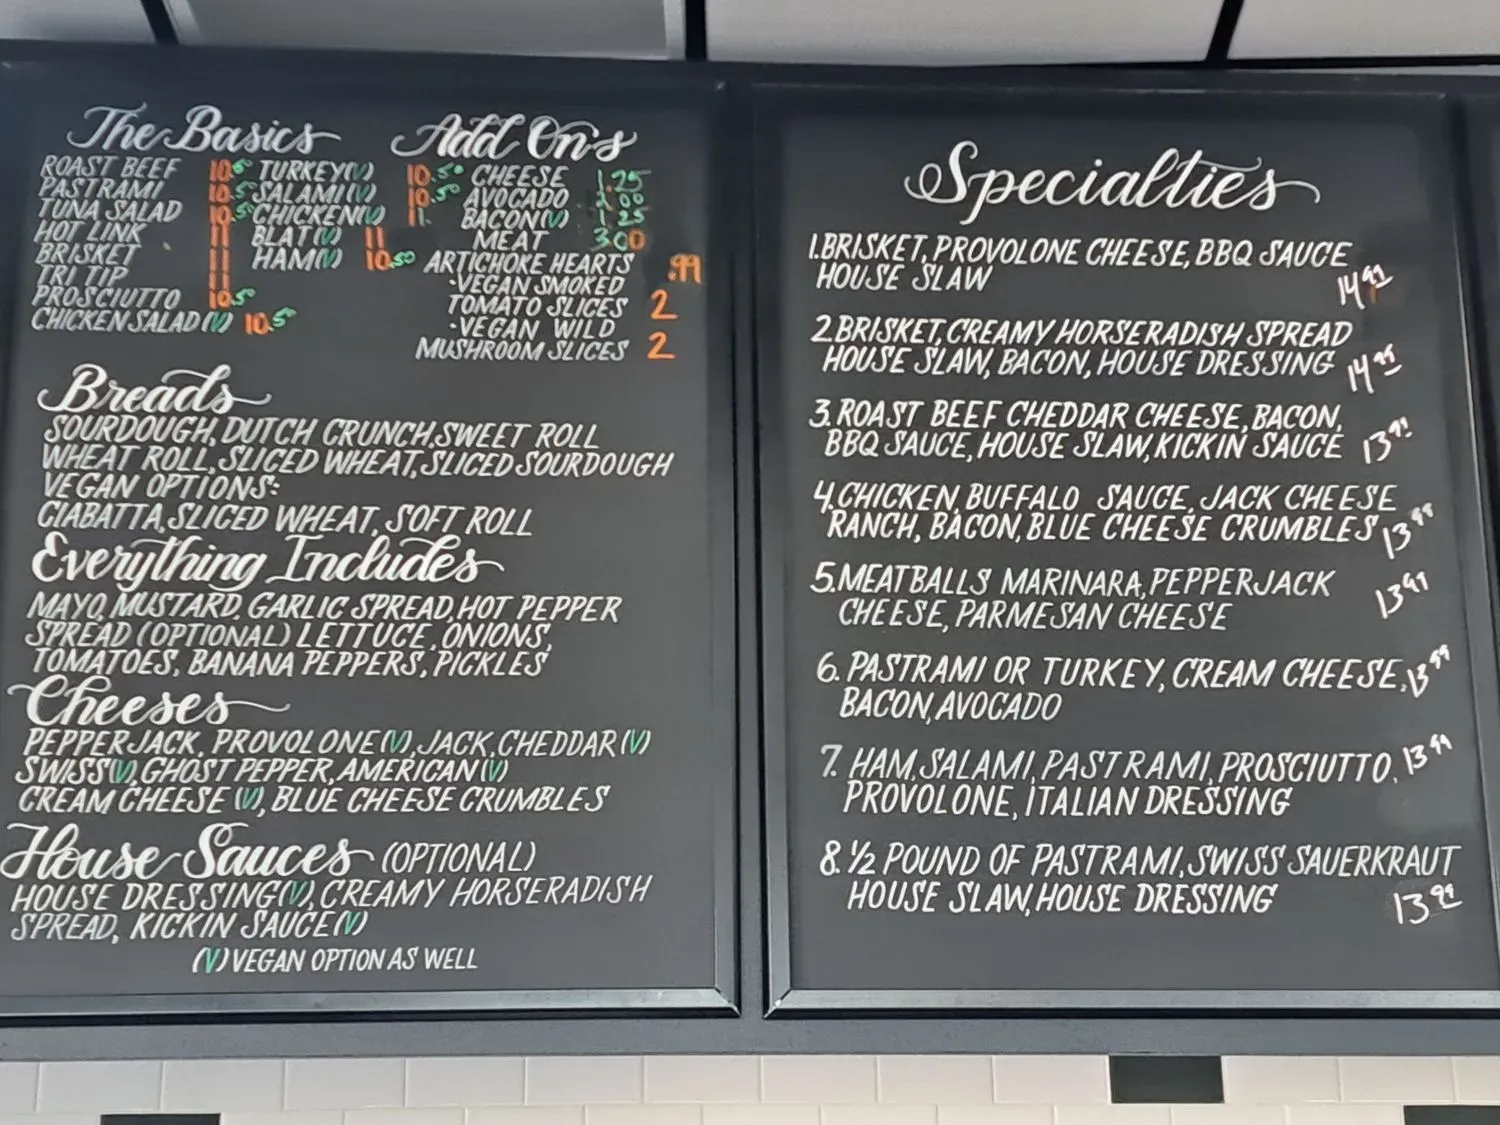 The Basics
ROAST BEEF 10.50 TURKEY(V) 10.50
PASTRAMI 10.50 SALAMI(V) 10.50
TUNA SALAD 10.50 CHICKEN(V) 11.
HOT LINK 11 BLAT(V) 11
BRISKET 11 HAM(V) 10.50
TRI TIP 11
PROSCIUTTO 10.50
CHICKEN SALAD(V) 10.50
Add On's
CHEESE 1.25
AVOCADO 2.00
BACON(V) 1.25
MEAT 3.00
ARTICHOKE HEARTS .99
·VEGAN SMOKED
TOMATO SLICES 2
·VEGAN WILD
MUSHROOM SLICES 2
Breads
SOURDOUGH, DUTCH CRUNCH, SWEET ROLL
WHEAT ROLL, SLICED WHEAT, SLICED SOURDOUGH
VEGAN OPTIONS:
CIABATTA, SLICED WHEAT, SOFT ROLL
Everything Includes
MAYO, MUSTARD, GARLIC SPREAD, HOT PEPPER
SPREAD (OPTIONAL) LETTUCE, ONIONS,
TOMATOES, BANANA PEPPERS, PICKLES
Cheeses
PEPPERJACK, PROVOLONE(V), JACK, CHEDDAR(V)
SWISS(V), GHOST PEPPER, AMERICAN(V)
CREAM CHEESE (V), BLUE CHEESE CRUMBLES
House Sauces (OPTIONAL)
HOUSE DRESSING(V), CREAMY HORSERADISH
SPREAD, KICKIN SAUCE(V)
(V) VEGAN OPTION AS WELL
Specialties
1. BRISKET, PROVOLONE CHEESE, BBQ SAUCE
HOUSE SLAW 14.99
2. BRISKET, CREAMY HORSERADISH SPREAD
HOUSE SLAW, BACON, HOUSE DRESSING 14.99
3. ROAST BEEF CHEDDAR CHEESE, BACON,
BBQ SAUCE, HOUSE SLAW, KICKIN SAUCE 13.99
4. CHICKEN, BUFFALO SAUCE, JACK CHEESE
RANCH, BACON, BLUE CHEESE CRUMBLES 13.99
5. MEATBALLS MARINARA, PEPPERJACK
CHEESE, PARMESAN CHEESE 13.99
6. PASTRAMI OR TURKEY, CREAM CHEESE, 13.99
BACON, AVOCADO
7. HAM, SALAMI, PASTRAMI, PROSCIUTTO, 13.99
PROVOLONE, ITALIAN DRESSING
8. 1/2 POUND OF PASTRAMI, SWISS SAUERKRAUT
HOUSE SLAW, HOUSE DRESSING 13.99